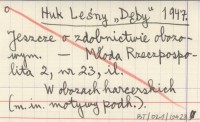 Huk Leśny „Dęby" 1947.
Jeszcze o zdobnictwie obozo-
wym. — Młoda Rzeczpospo-
lita 2, nr 23, il.
W obozach harcerskich
(m.in. motywy podh.).